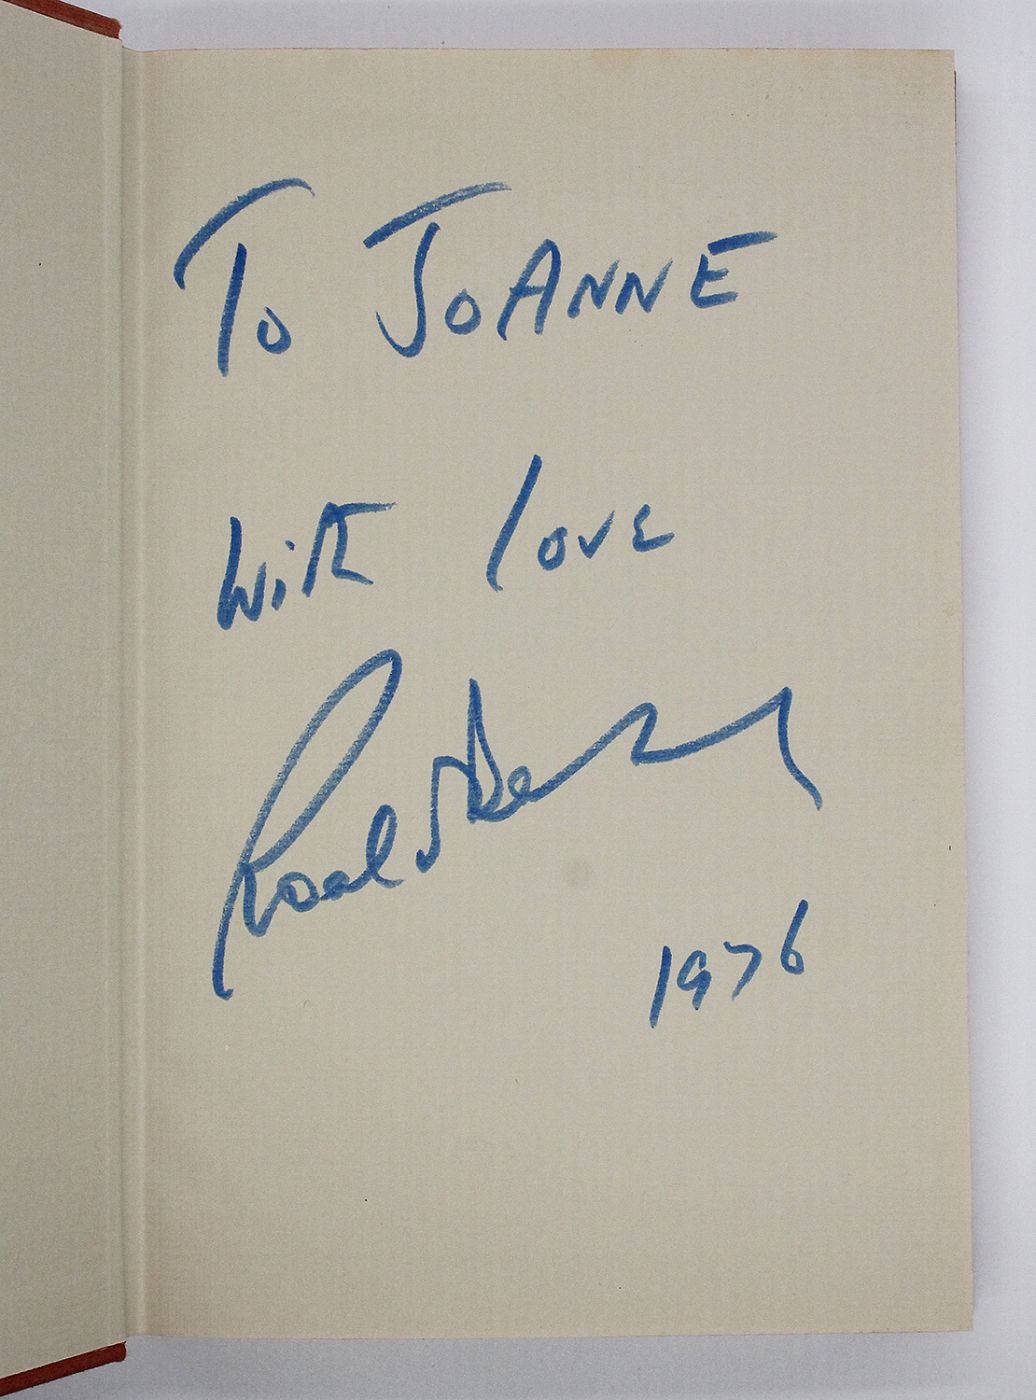 To JOANNE
with love
Roald Dahl
1976